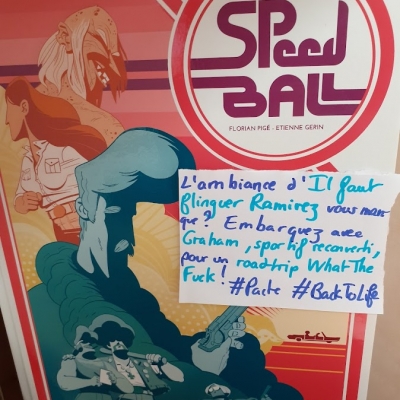 SPeed
BALL
FLORIAN PIGÉ - ETIENNE GERIN
L'ambiance d'Il faut
flinguer Ramirez vous manque
que? Embarquez avec
Graham, sportif reconverti,
pour un roadtrip What The
Fuck! #Pacte #BackToLife